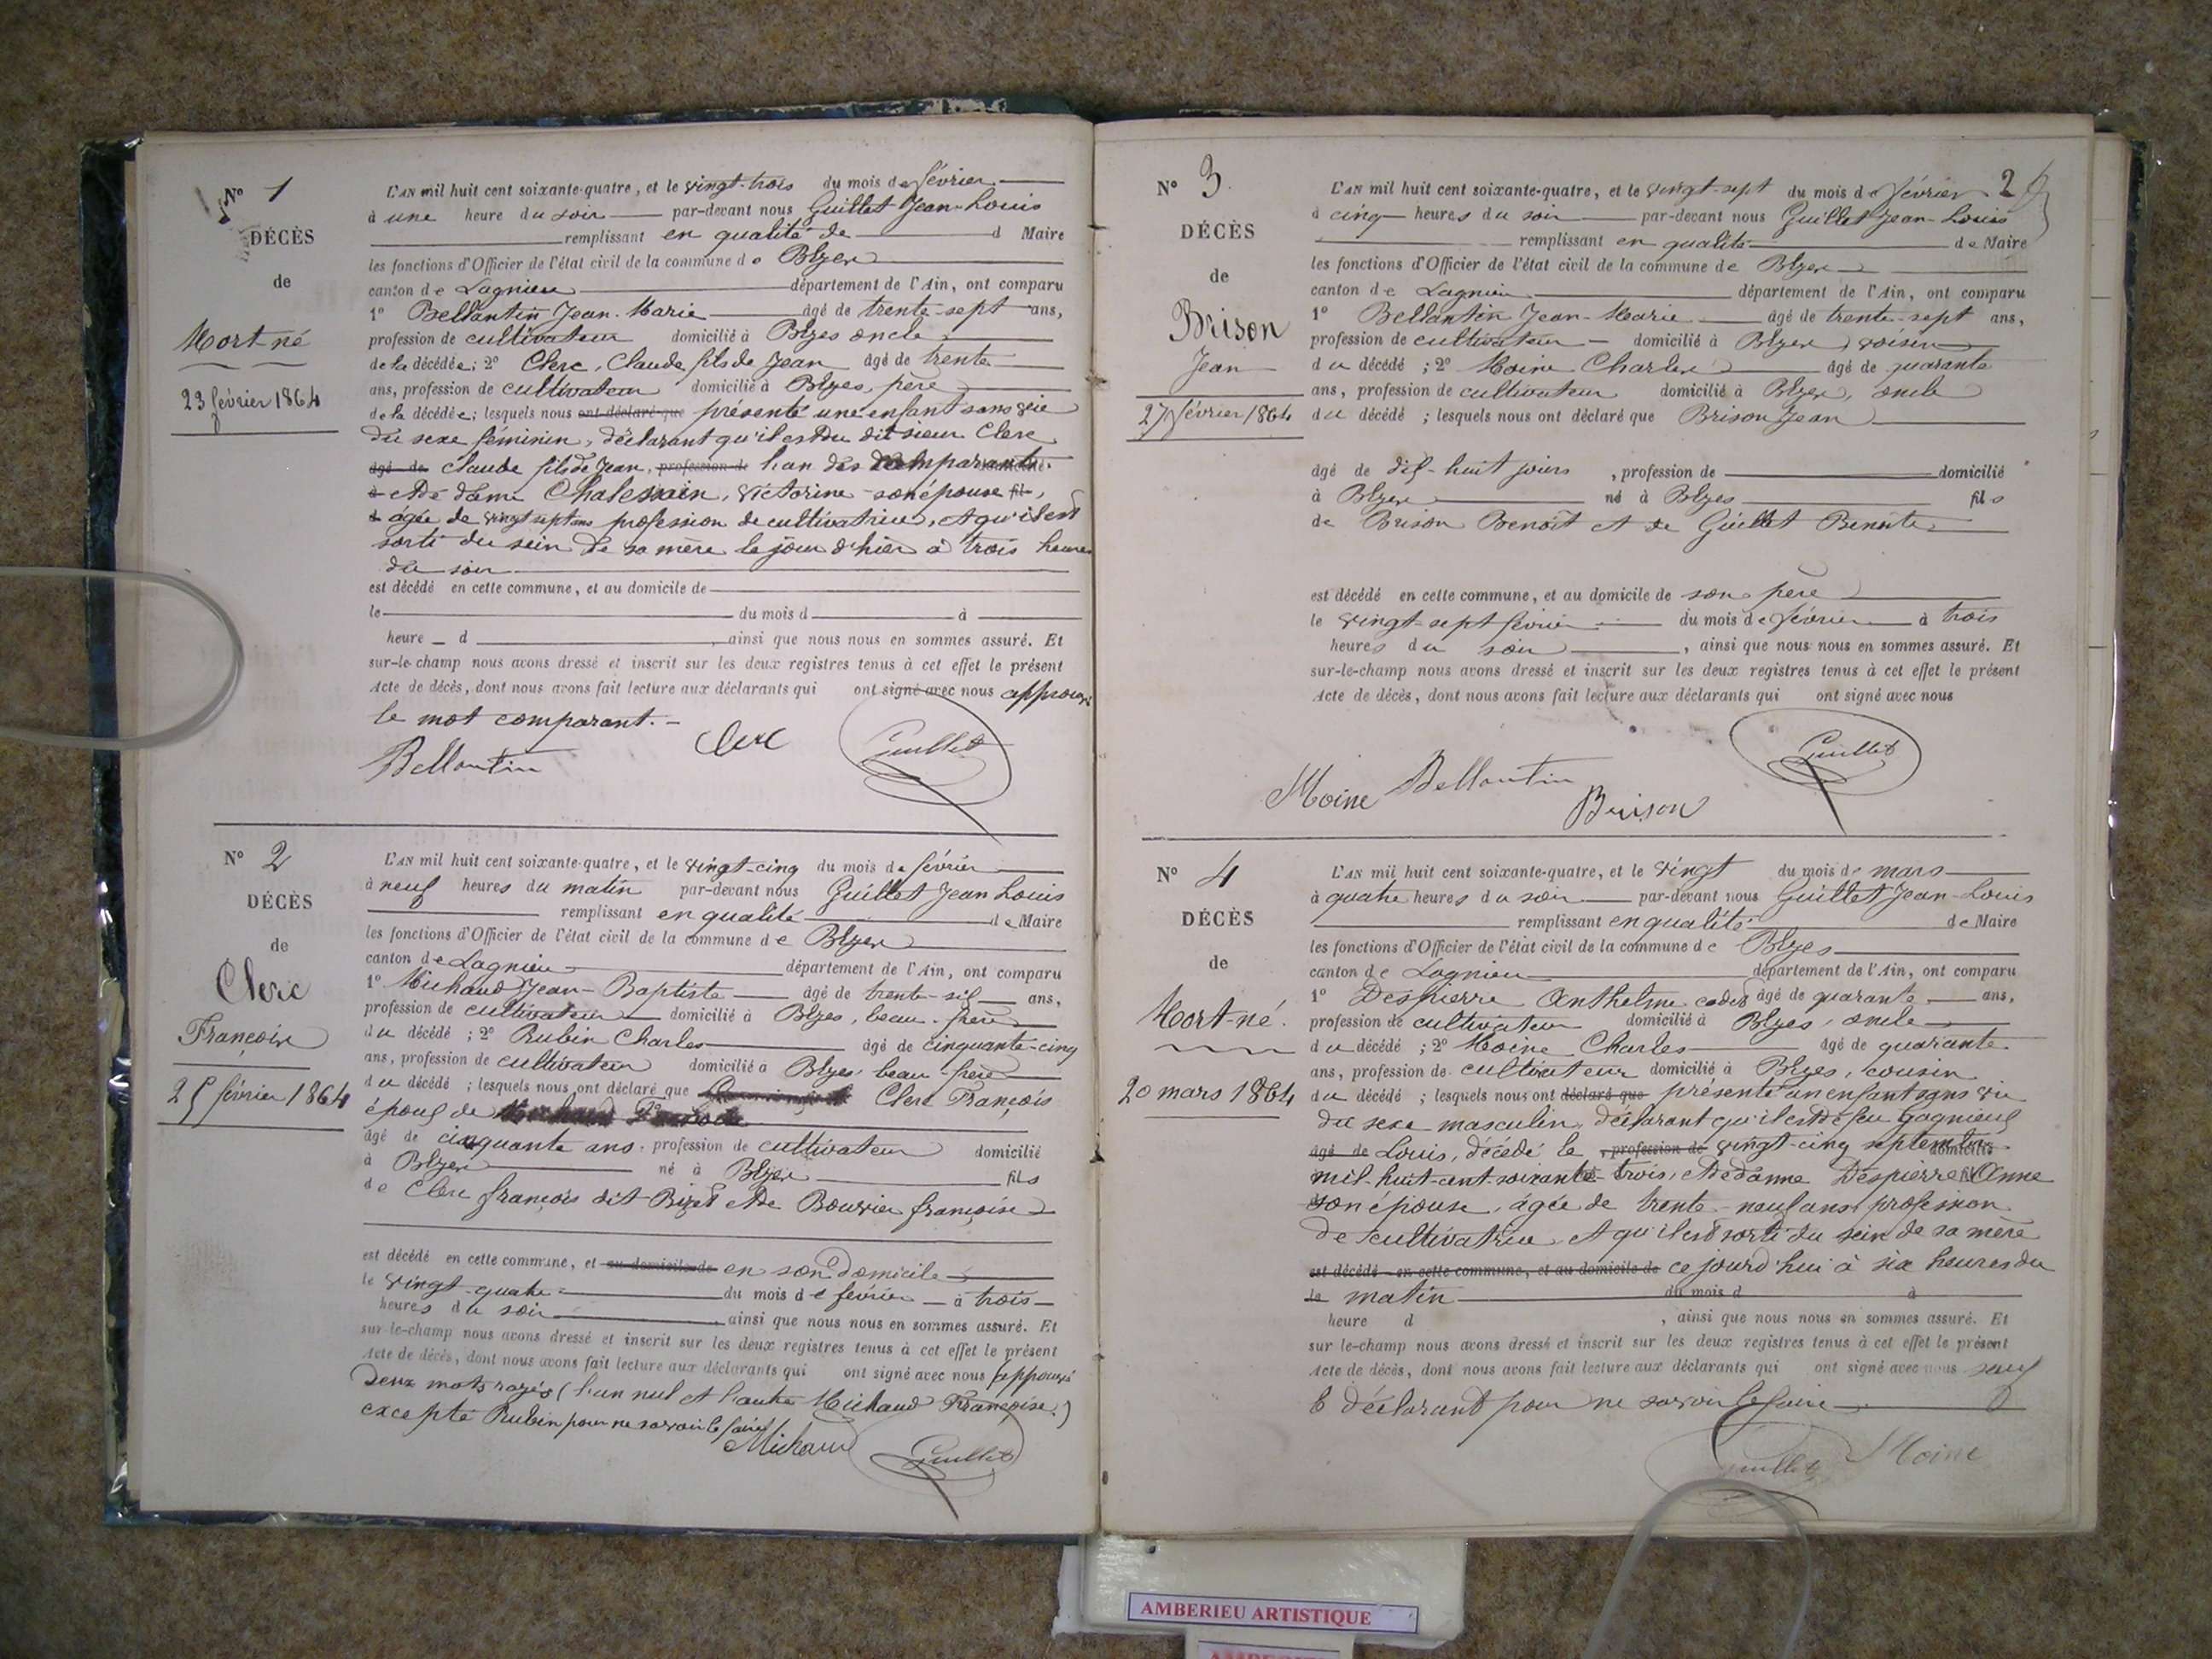 N° 1
DÉCÈS
de
Mort-né
23 février 1864
L'AN mil huit cent soixante-quatre, et le vingt-trois du mois de février
à une heure du soir par-devant nous Guillet Jean-Louis
remplissant en qualité de d Maire
les fonctions d'Officier de l'état civil de la commune de Blyes
canton de Lagnieu département de l'Ain, ont comparu
1° Bellantin Jean-Marie âgé de trente-sept ans,
profession de cultivateur domicilié à Blyes oncle
de la décédée; 2° Clerc, Claude fils de Jean âgé de trente
ans, profession de cultivateur domicilié à Blyes, père
de la décédée; lesquels nous ont déclaré que présenté une enfant sans vie
du sexe féminin, déclarant qu'il est du dit sieur Clerc
âgé de Claude fils de Jean, profession de l'un des comparants.
à et de dame Chalessin, Victorine son épouse fil,
d âgée de vingt sept ans profession de cultivatrice, et qu'il est
sorti du sein de sa mère le jour d'hier à trois heures
du soir
est décédé en cette commune, et au domicile de
le du mois d à
heure d , ainsi que nous nous en sommes assuré. Et
sur-le-champ nous avons dressé et inscrit sur les deux registres tenus à cet effet le présent
Acte de décès, dont nous avons fait lecture aux déclarants qui ont signé avec nous approuvé
le mot comparant.
Bellantin Clerc Guillet
N° 2
DÉCÈS
de
Clerc
François
25 février 1864
L'AN mil huit cent soixante-quatre, et le vingt-cinq du mois de février
à neuf heures du matin par-devant nous Guillet Jean Louis
remplissant en qualité de Maire
les fonctions d'Officier de l'état civil de la commune de Blyes
canton de Lagnieu département de l'Ain, ont comparu
1° Michaud Jean-Baptiste âgé de trente-six ans,
profession de cultivateur domicilié à Blyes, beau-frère
du décédé; 2° Rubin Charles âgé de cinquante-cinq
ans, profession de cultivateur domicilié à Blyes beau-frère
du décédé; lesquels nous ont déclaré que Clerc François
époux de
âgé de cinquante ans. profession de cultivateur domicilié
à Blyes né à Blyes fils
de Clerc françois dit Bizet et de Bouvier françoise
est décédé en cette commune, et au domicile de en son domicile
le vingt-quatre du mois de février à trois
heures du soir ainsi que nous nous en sommes assuré. Et
sur-le-champ nous avons dressé et inscrit sur les deux registres tenus à cet effet le présent
Acte de décès, dont nous avons fait lecture aux déclarants qui ont signé avec nous approuvé
deux mots rayés (l'un nul et l'autre Michaud Françoise.)
excepté Rubin pour ne savoir le faire
Michaud Guillet
2
N° 3
DÉCÈS
de
Brison
Jean
27 février 1864
L'AN mil huit cent soixante-quatre, et le vingt-sept du mois de février
à cinq heures du soir par-devant nous Guillet Jean-Louis
remplissant en qualité de Maire
les fonctions d'Officier de l'état civil de la commune de Blyes
canton de Lagnieu département de l'Ain, ont comparu
1° Bellantin Jean-Marie âgé de trente-sept ans,
profession de cultivateur domicilié à Blyes, voisin
du décédé; 2° Moine Charles âgé de quarante
ans, profession de cultivateur domicilié à Blyes, oncle
du décédé; lesquels nous ont déclaré que Brison Jean
âgé de dix-huit jours, profession de domicilié
à Blyes né à Blyes fils
de Brison Benoît et de Guillet Benoite
est décédé en cette commune, et au domicile de son père
le vingt-sept février du mois de février à trois
heures du soir, ainsi que nous nous en sommes assuré. Et
sur-le-champ nous avons dressé et inscrit sur les deux registres tenus à cet effet le présent
Acte de décès, dont nous avons fait lecture aux déclarants qui ont signé avec nous
Moine Bellantin Brison Guillet
N° 4
DÉCÈS
de
Mort-né.
20 mars 1864
L'AN mil huit cent soixante-quatre, et le vingt du mois de mars
à quatre heures du soir par-devant nous Guillet Jean-Louis
remplissant en qualité de Maire
les fonctions d'Officier de l'état civil de la commune de Blyes
canton de Lagnieu département de l'Ain, ont comparu
1° Despierre Anthelme cadet âgé de quarante ans,
profession de cultivateur domicilié à Blyes, oncle
du décédé; 2° Moine Charles âgé de quarante
ans, profession de cultivateur domicilié à Blyes, cousin
du décédé; lesquels nous ont déclaré que présenté un enfant sans vie
du sexe masculin, déclarant qu'il est de feu Gagnieux
âgé de Louis, décédé le profession de vingt-cinq septembre domicilié
mil-huit-cent-soixante-trois, et de dame Despierre Anne
son épouse, âgée de trente-neuf ans, profession
de cultivatrice, et qu'il est sorti du sein de sa mère
est décédé en cette commune, et au domicile de ce jourd'hui à six heures du
le matin du mois d à
heure d , ainsi que nous nous en sommes assuré. Et
sur le-champ nous avons dressé et inscrit sur les deux registres tenus à cet effet le présent
Acte de décès, dont nous avons fait lecture aux déclarants qui ont signé avec nous sauf
le déclarant pour ne savoir le faire
Guillet Moine
AMBERIEU ARTISTIQUE